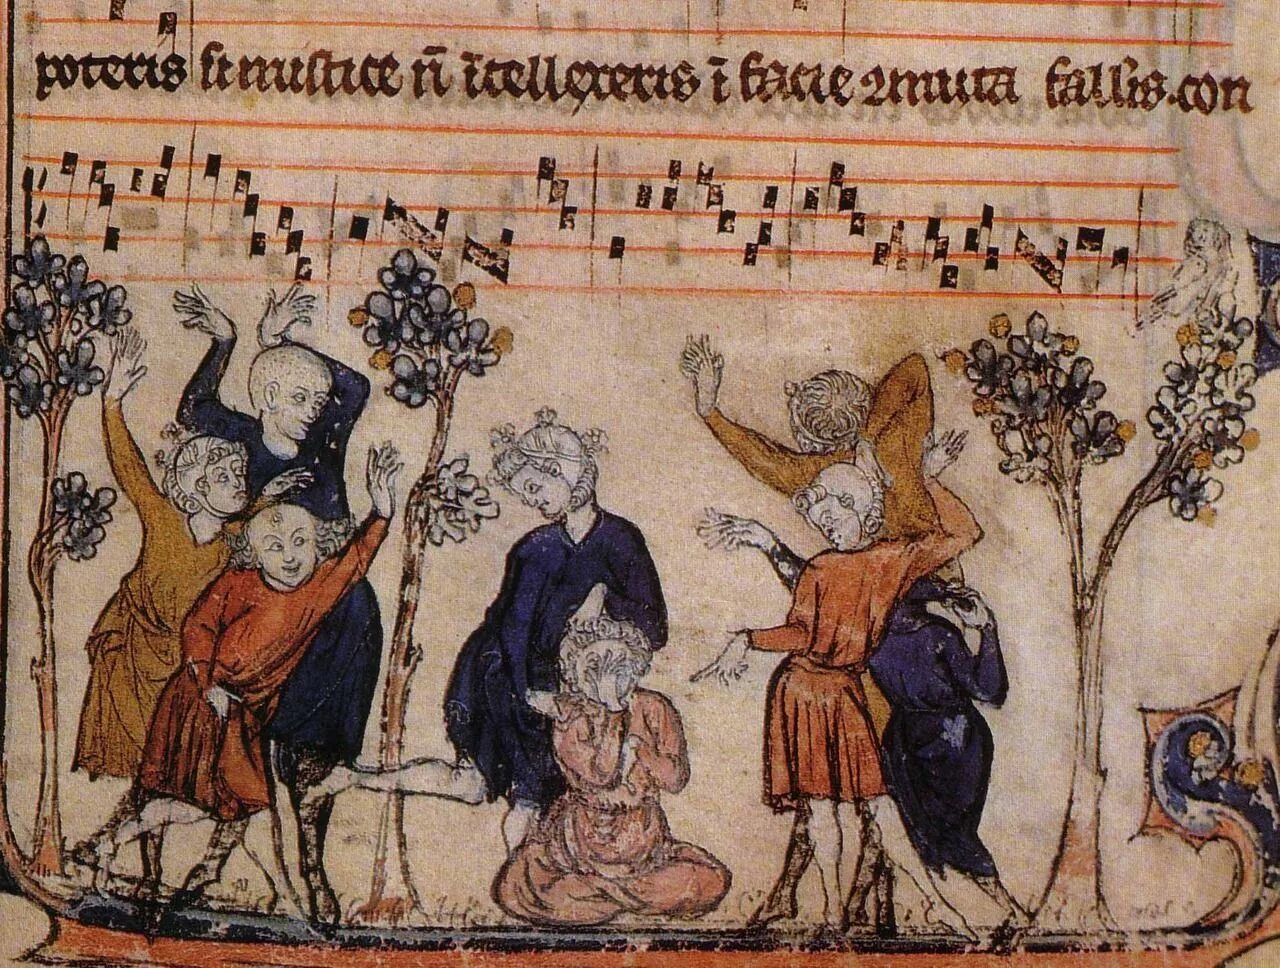 poteris si mistice n̄ ītellexeris ī facie ꝯmuta fallis.con